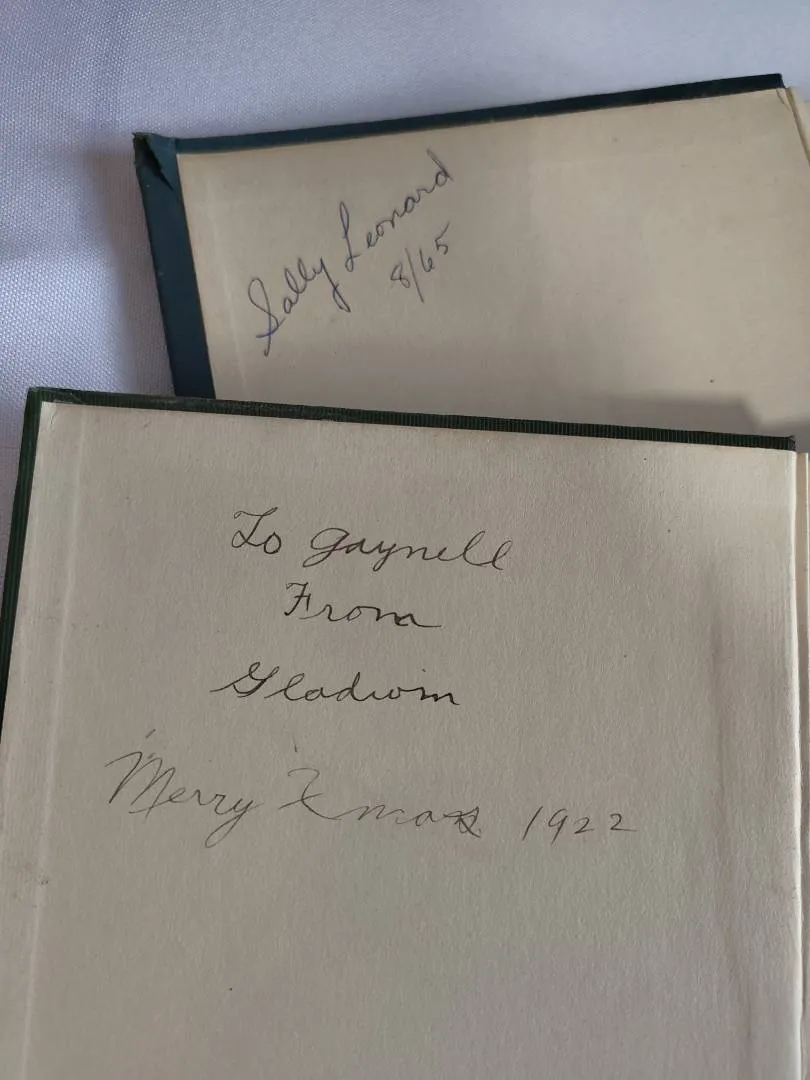 Sally Leonard
8/65
To Gaynell
From
Gladwin
Merry Xmas 1922